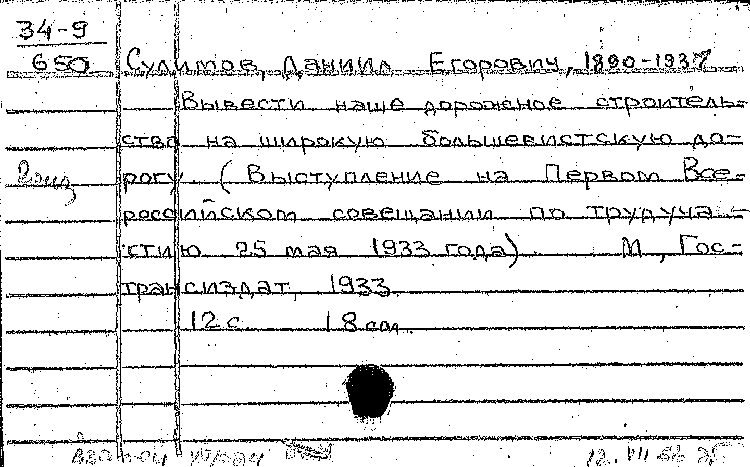 34-9
650
Сулимов, Даниил Егорович, 1890-1937
Вывести наше дорожное строитель-
ство на широкую большевистскую до-
рогу. (Выступление на Первом Все-
российском совещании по трудуча-
стию 25 мая 1933 года). М., Гос-
трансиздат, 1933.
12 с. 18 см.